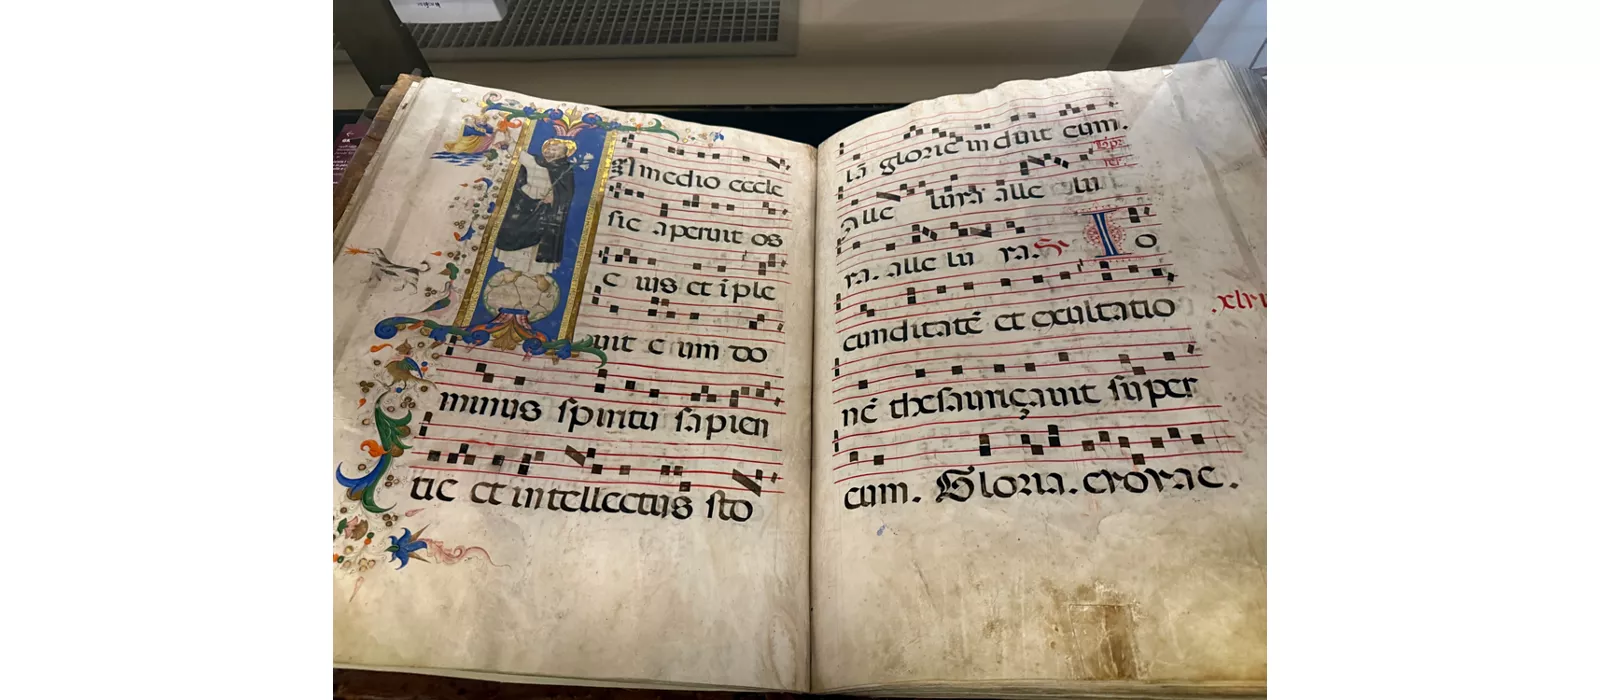 n medio eccle
sie aperuit os
e ius et iple
uit e um do
minus spiritu sapien
tie et intellectus sto
lā glorie induit eum.
alle luia alle lu
ia. alle lu ia. Io
cunditatē et exultatio
nē thesauriçauit super
eum. Gloria. euouae.